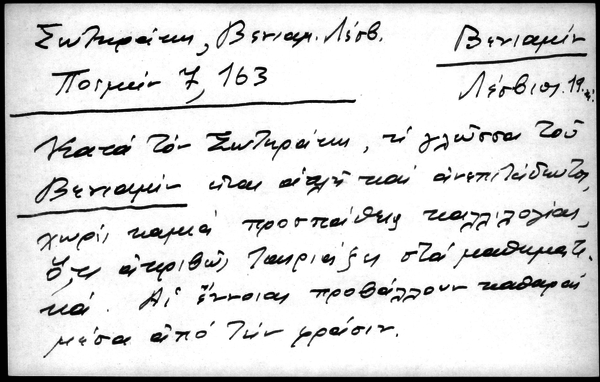 Σωτηράκη, Βενιαμ. Λέσβ.
Βενιαμίν
Ποιμήν 7, 163
Λέσβιος. 19
Κατά τόν Σωτηράκη, ἡ γλῶσσα τοῦ
Βενιαμίν εἶναι ἁπλῆ καί ἀνεπιτήδευτος,
χωρίς καμιά προσπάθεια καλλιλογίας,
ὅ,τι ἀκριβῶς ταιριάζει στά μαθηματι-
κά. Αἱ ἔννοιαι προβάλλουν καθαραί
μέσα ἀπό τήν φράσιν.